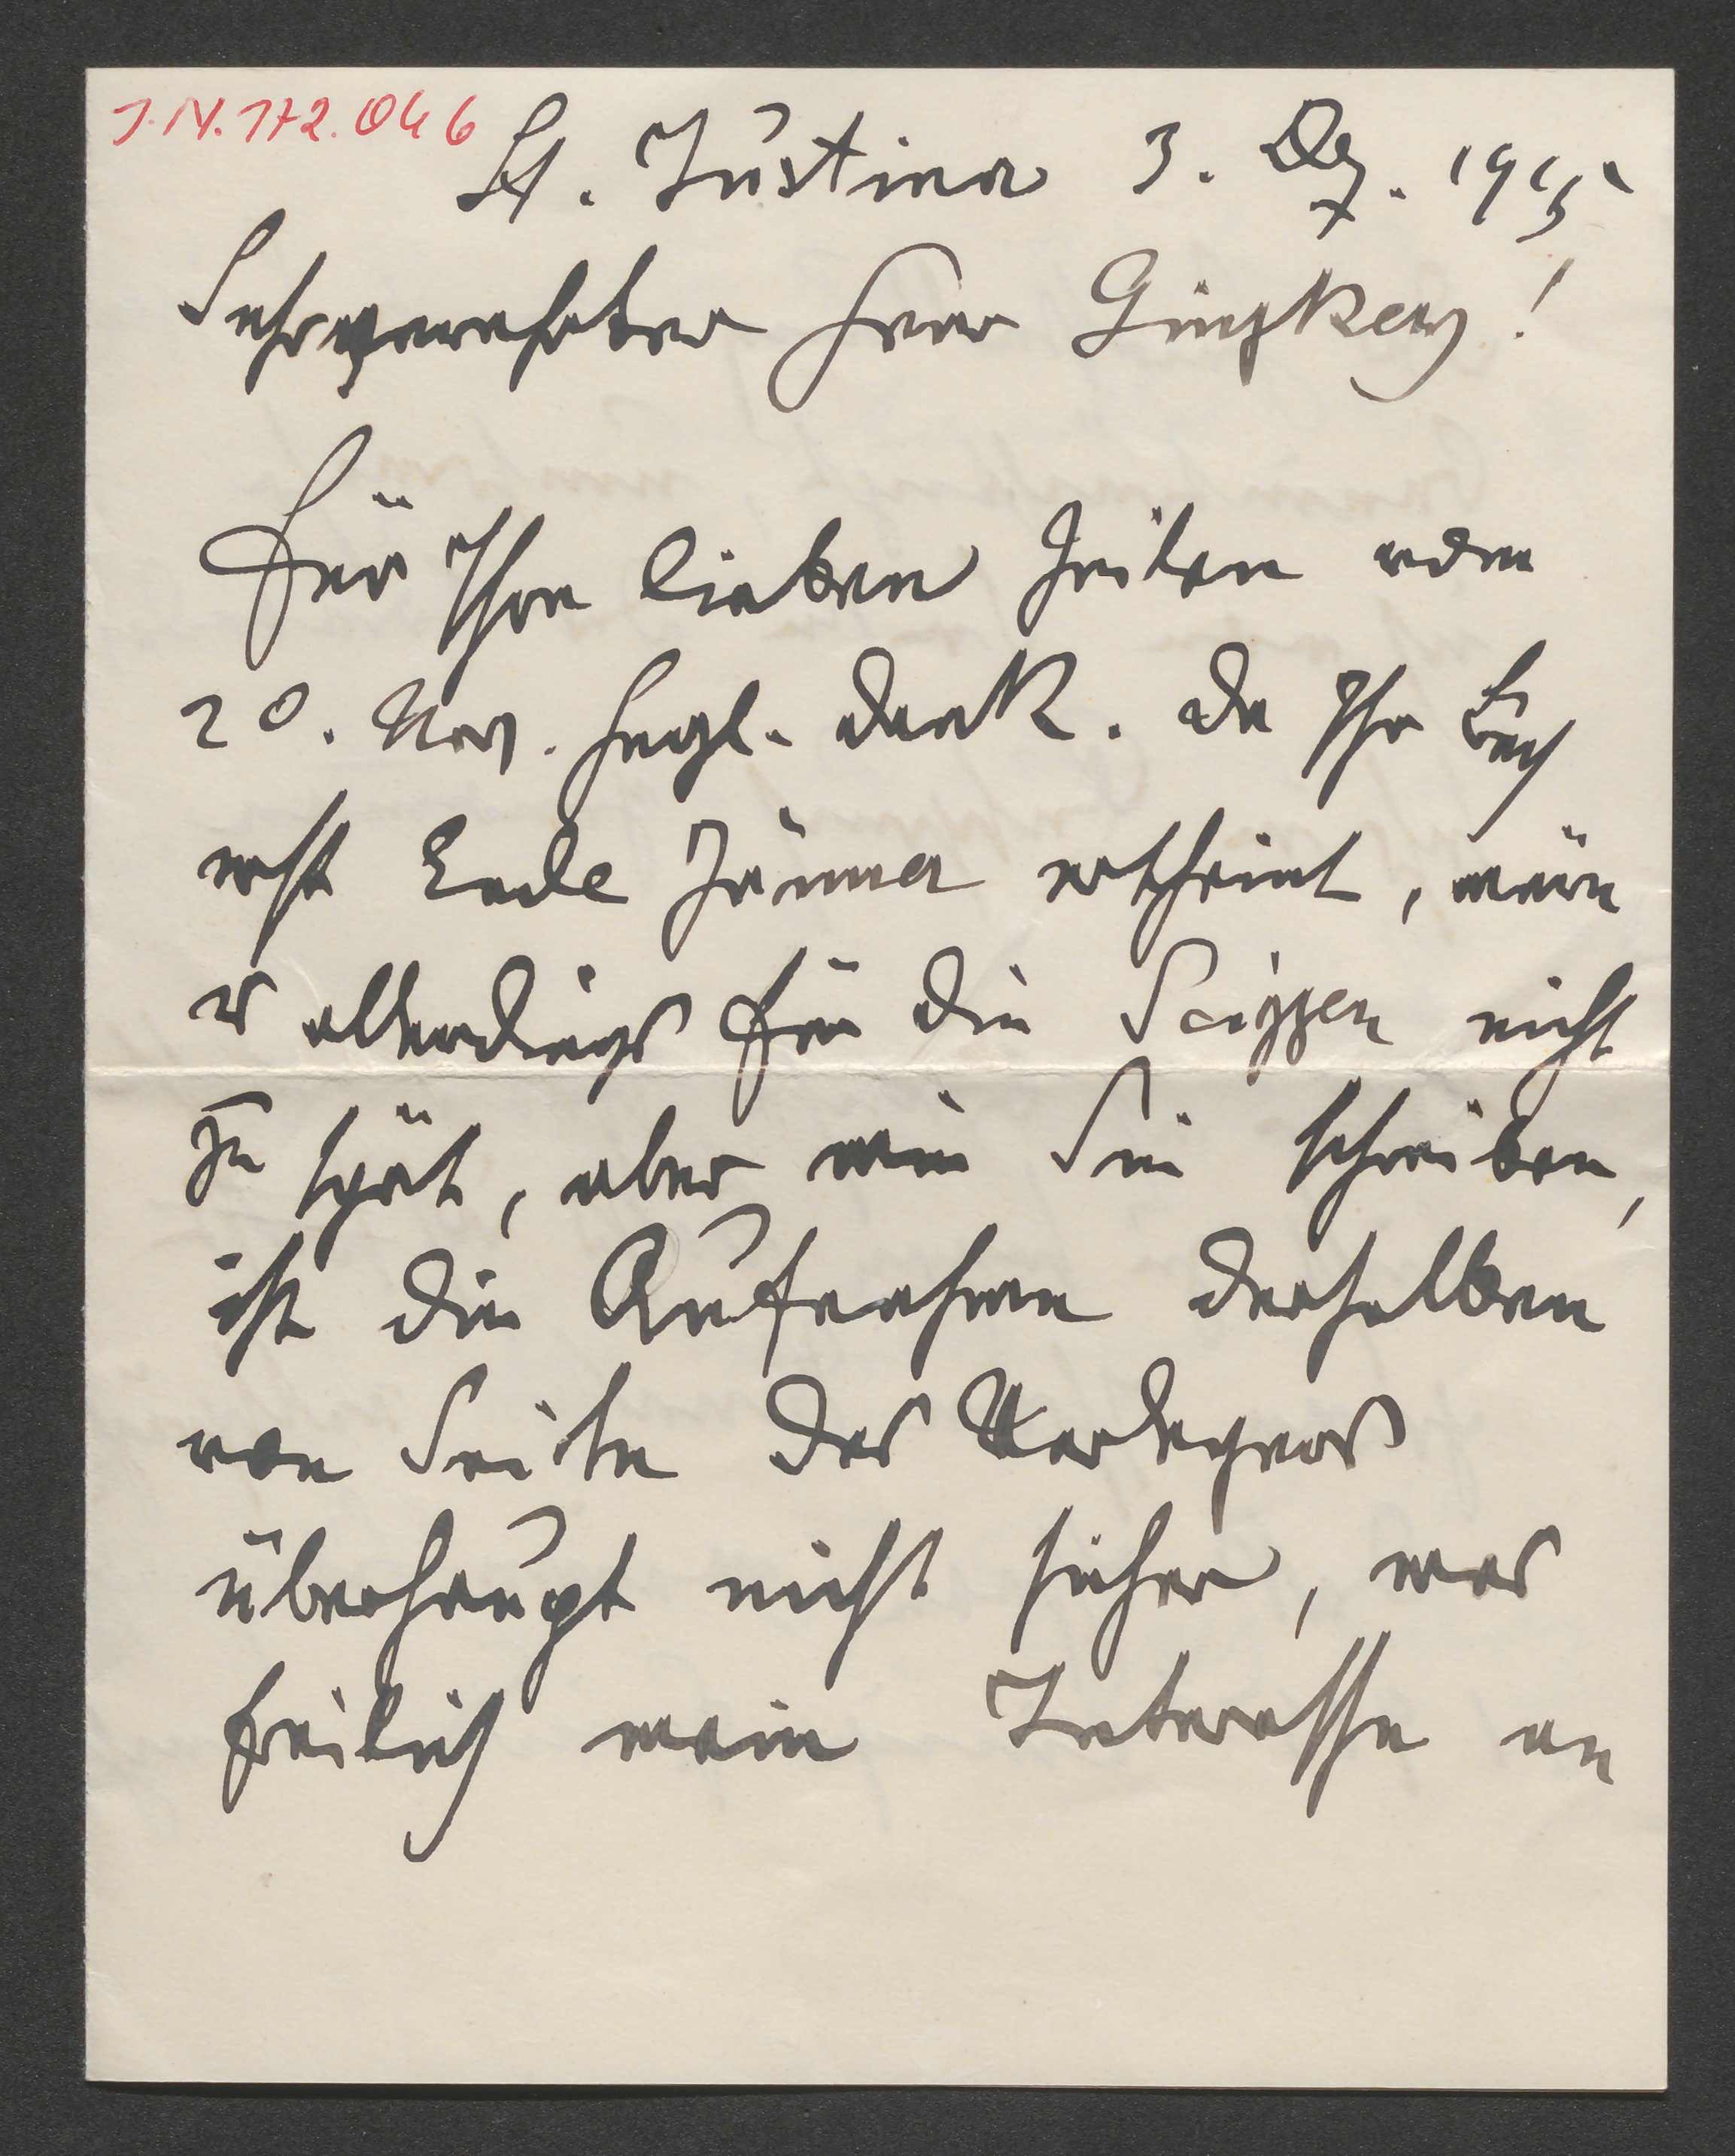 J.N. 172.046
St. Justina 3. Dez. 1915
Sehrverehrter Herr Ginzkey!
Für Ihre lieben Zeilen vom
20. Nov. herzl. Dank. Da Ihr Buch
erst Ende Jänner erscheint, wäre
es allerdings für die Scizzen nicht
zu spät, aber wie Sie schreiben,
ist die Aufnahme derselben
von Seite des Verlegers
überhaupt nicht sicher, was
freilich mein Interesse an